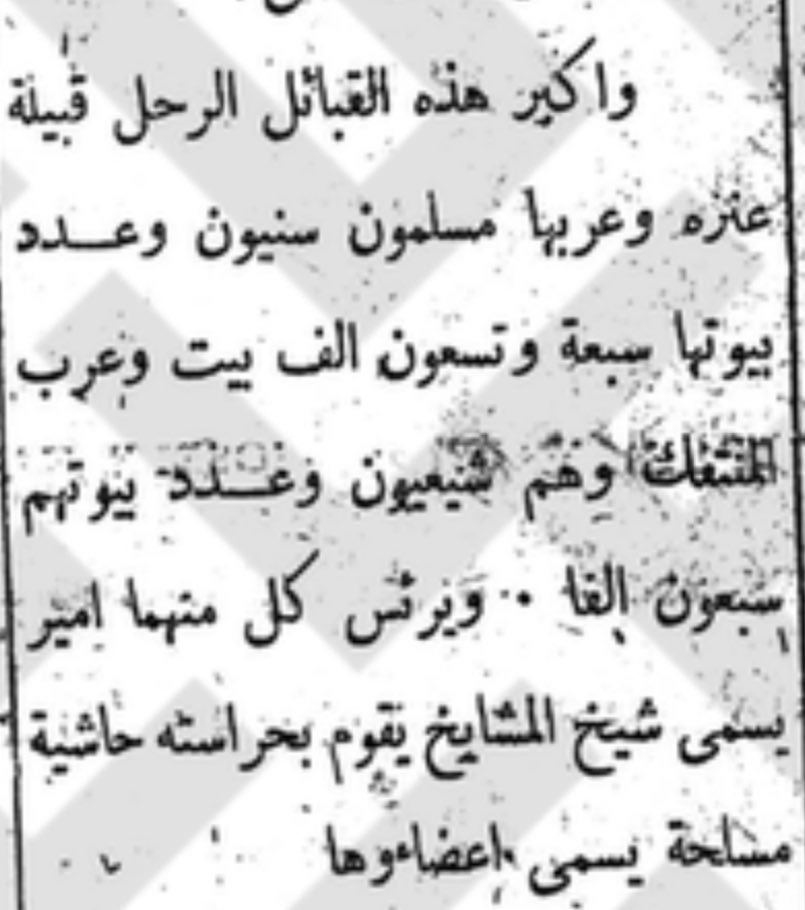 واكبر هذه القبائل الرحل قبيلة
عنزه وعربها مسلمون سنيون وعدد
بيوتها سبعة وتسعون الف بيت وعرب
المنتفك وهم شيعيون وعدد بيوتهم
سبعون الفا . ويرئس كل منهما امير
يسمى شيخ المشايخ يقوم بحراسته حاشية
مسلحة يسمى اعضاءوها